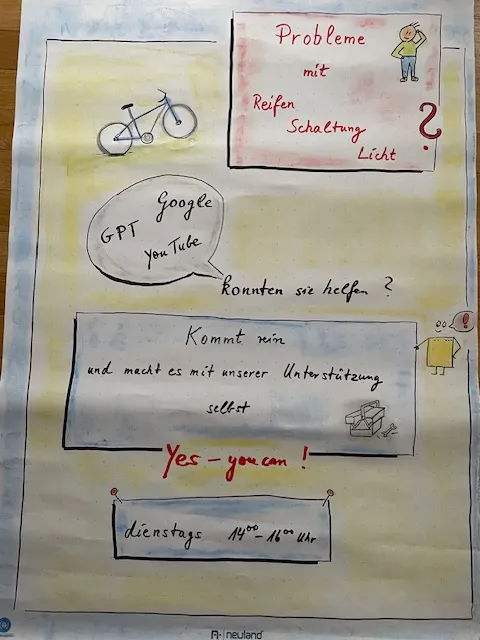 Probleme
mit
Reifen
Schaltung
Licht
?
Google
GPT
YouTube
konnten sie helfen ?
!
Kommt rein
und macht es mit unserer Unterstützung
selbst
Yes – you can !
dienstags 14⁰⁰ – 16⁰⁰ Uhr
neuland